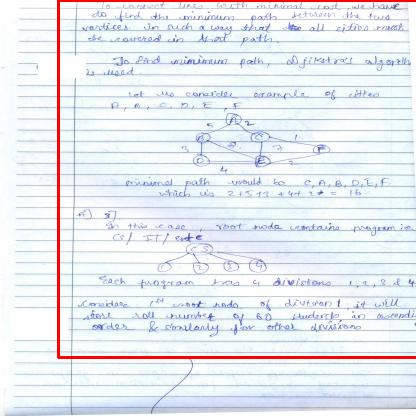 To connect lines with minimal cost we have
to find the minimum path between the two
vertices in such a way that the all cities must
be covered in that path.
To find minimum path, Djikstra's algorithm
is used.
Let us consider example of cities
A, B, C, D, E, F
A
5 2
B C 1
3 8 7 F
D E 2
4
minimal path would be C, A, B, D, E, F
which is 2+5+3+4+2 = 16
In this case, root node contains program ie
CS/ IT/
CS
1 2 3 4
Each program has 4 divisions 1, 2, 3 & 4
Consider 1st root node of division 1, it will
store roll number of 60 students in
order & similarly for other divisions